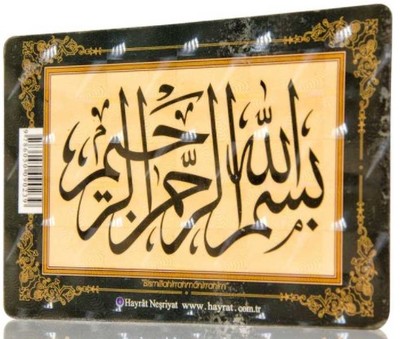 بسم الله الرحمن الرحيم
"Bismillahirrahmânirrahîm"
Hayrât Neşriyat www.hayrat.com.tr